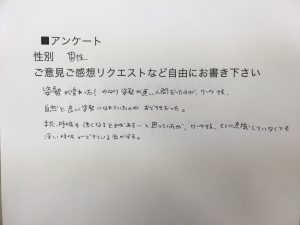 ■アンケート
性別 男性
ご意見ご感想リクエストなど自由にお書き下さい
姿勢が変わった! かなり姿勢が悪い人間だったのが、ワーク後、
自然と良い姿勢になれていたのが おどろきだった。
また、呼吸も浅くなるときがあるな と思っていたが、ワーク後、とくに意識していなくても
深い呼吸ができている気がする。